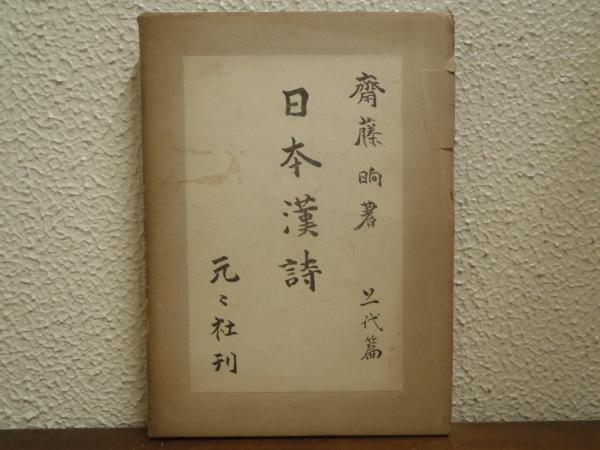 齋藤晌著
日本漢詩
上代篇
元々社刊